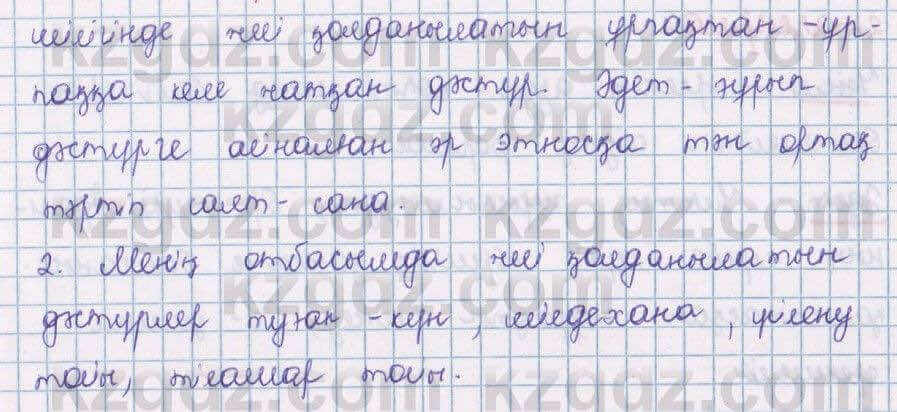 ішінде жиі қолданылатын ұрпақтан -ұр-
паққа келе жатқан дәстүр. Әдет - ғұрып
дәстүрге айналған әр этносқа тән ортақ
тәртіп салт - сана.
2. Менің отбасымда жиі қолданылатын
дәстүрлер туған - күн, шілдехана, үйлену
тойы, тілашар тойы.